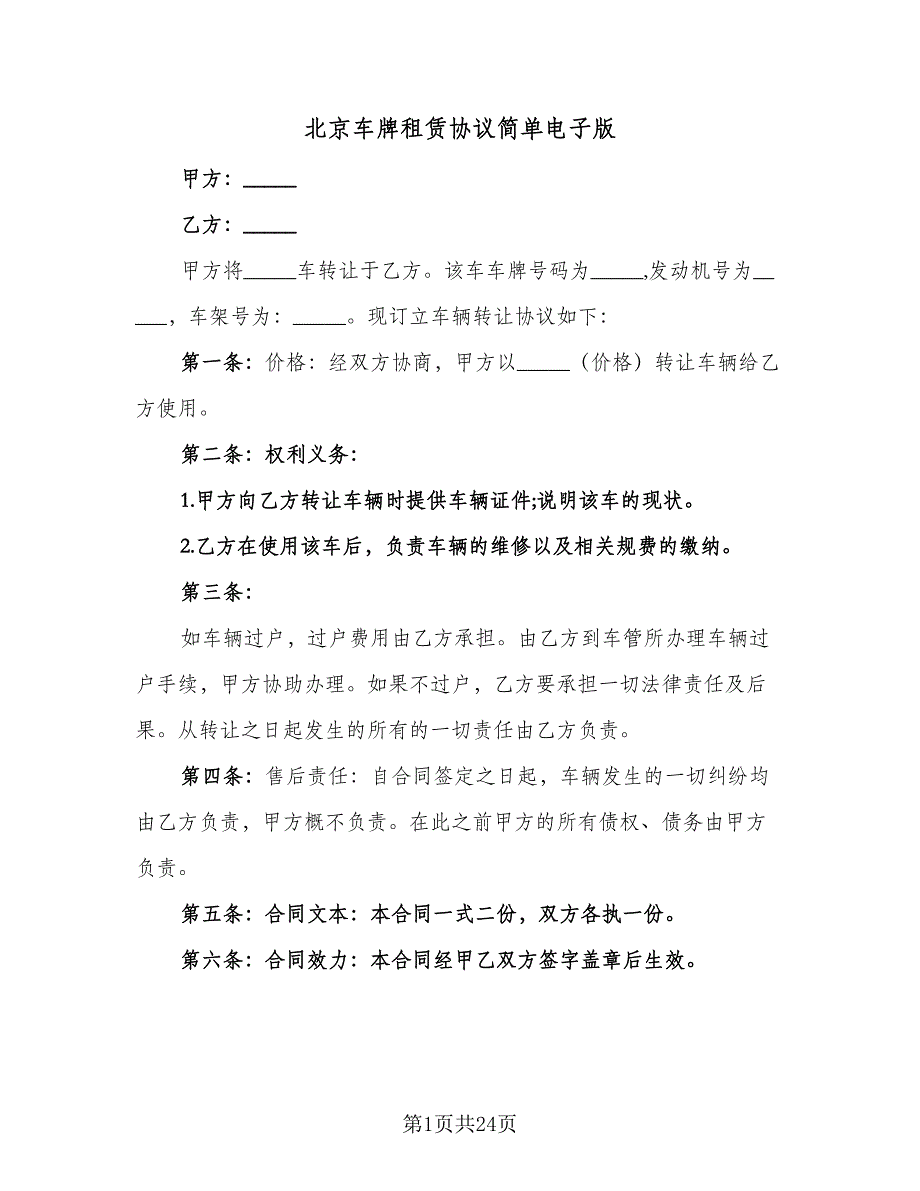 北京车牌租赁协议简单电子版
甲方：_____
乙方：_____
甲方将_____车转让于乙方。该车车牌号码为_____,发动机号为__
___，车架号为：_____。现订立车辆转让协议如下：
第一条：价格：经双方协商，甲方以_____（价格）转让车辆给乙
方使用。
第二条：权利义务：
1.甲方向乙方转让车辆时提供车辆证件;说明该车的现状。
2.乙方在使用该车后，负责车辆的维修以及相关规费的缴纳。
第三条：
如车辆过户，过户费用由乙方承担。由乙方到车管所办理车辆过
户手续，甲方协助办理。如果不过户，乙方要承担一切法律责任及后
果。从转让之日起发生的所有的一切责任由乙方负责。
第四条：售后责任：自合同签定之日起，车辆发生的一切纠纷均
由乙方负责，甲方概不负责。在此之前甲方的所有债权、债务由甲方
负责。
第五条：合同文本：本合同一式二份，双方各执一份。
第六条：合同效力：本合同经甲乙双方签字盖章后生效。
第1页共24页